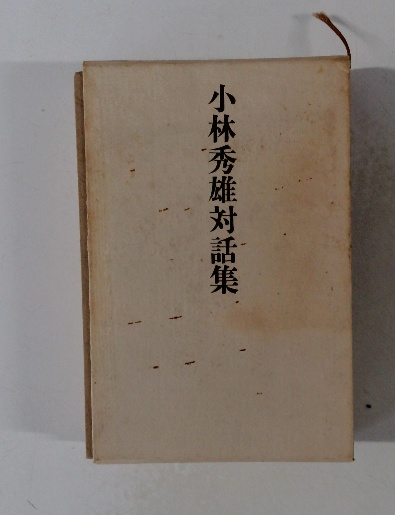 小林秀雄対話集